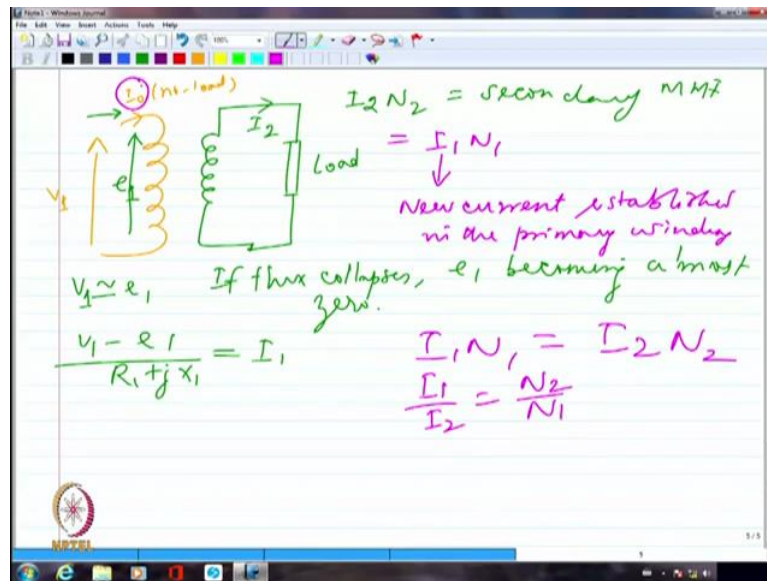 Note1 - Windows Journal
File Edit View Insert Actions Tools Help
100%
B I
I0 (no-load)
I2N2 = secondary MMF
I2
Load
= I1N1
V1
e1
New current established
in the primary winding
V1 ≃ e1
If flux collapses, e1 becoming almost
zero.
V1 - e1
R1 + j x1
= I1
I1N1 = I2N2
I1/I2 = N2/N1
NPTEL
5/5
5